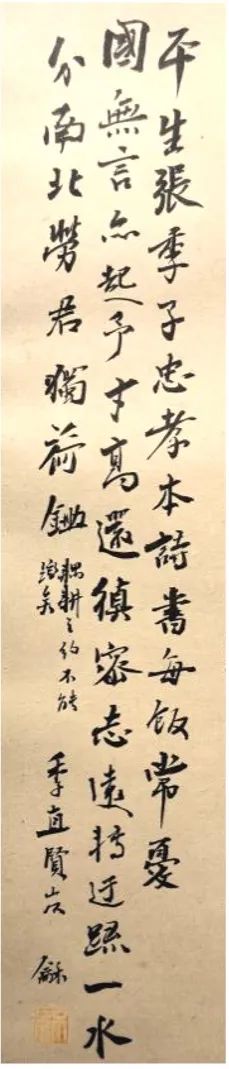 平生張季子忠孝本詩書每飯常憂
國無言亦起予才高還縝密志遠轉迂疏一水
分南北勞君獨荷鋤
耦耕之約不能
矣
季直賢友 龢